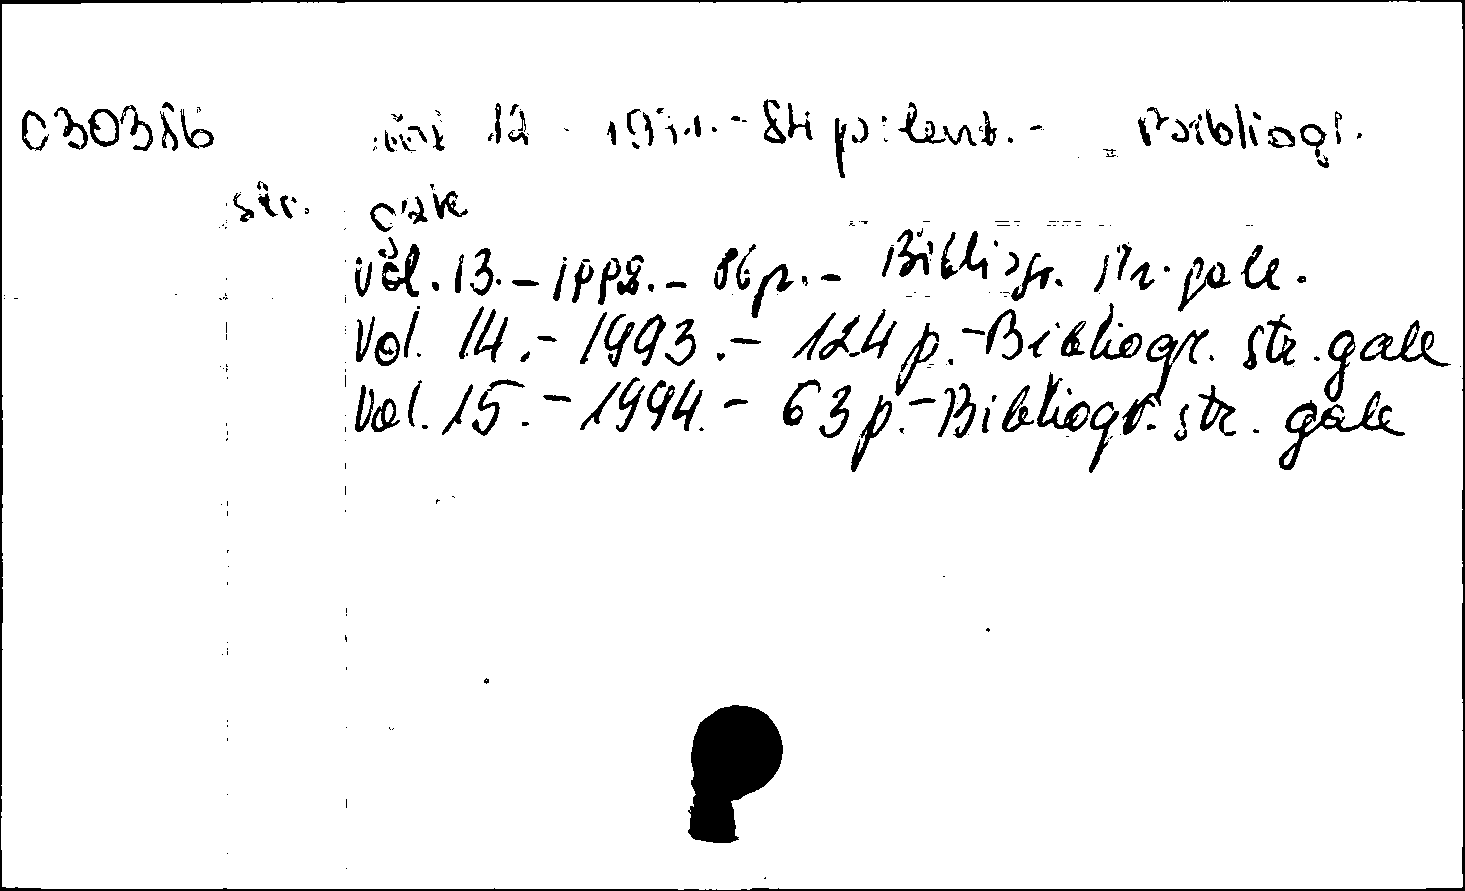 030386 12 - 1991. - 84 p : lent. - Bibliogr.
str. gale
Vol. 13. - 1992. - 86 p. - Bibliogr. str. gale.
Vol. 14. - 1993. - 124 p. - Bibliogr. str. gale
Vol. 15. - 1994. - 63 p. - Bibliogr. str. gale